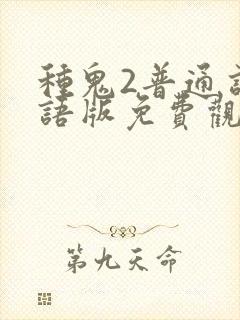 種鬼2普通
語版免費觀
第九天命